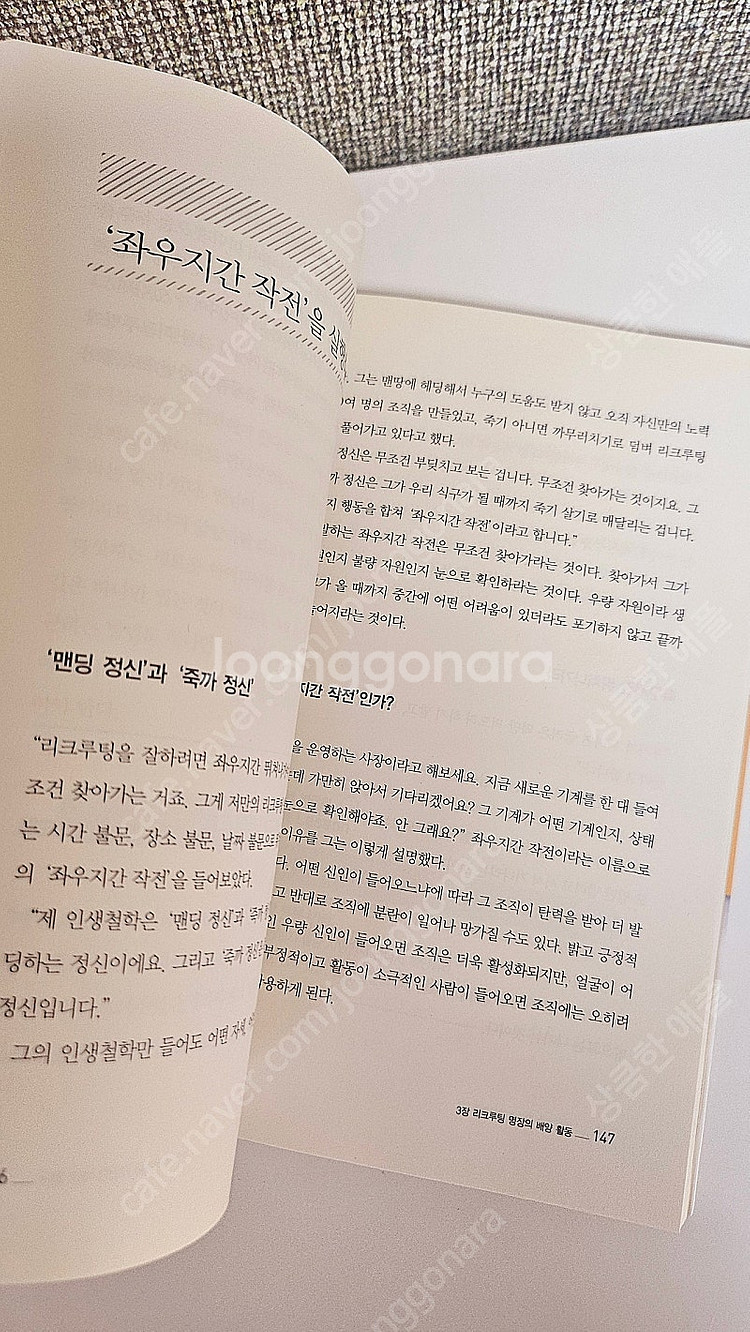 ‘좌우지간 작전’을
‘맨딩 정신’과 ‘죽까 정신’
“리크루팅을 잘하려면 좌우지간
조건 찾아가는 거죠. 그게 저만의
는 시간 불문, 장소 불문, 날짜
의 ‘좌우지간 작전’을 들어보았다.
“제 인생철학은 ‘맨딩 정신’과
딩하는 정신이에요. 그리고
정신입니다.”
그의 인생철학만 들어도 어떤
그는 맨땅에 헤딩해서 누구의 도움도 받지 않고 오직 자신만의 노력
여 명의 조직을 만들었고, 죽기 아니면 까무러치기로 덤벼 리크루팅
풀어가고 있다고 했다.
정신은 무조건 부딪치고 보는 겁니다. 무조건 찾아가는 것이지요. 그
까 정신은 그가 우리 식구가 될 때까지 죽기 살기로 매달리는 겁니다.
지 행동을 합쳐 ‘좌우지간 작전’이라고 합니다.”
말하는 좌우지간 작전은 무조건 찾아가라는 것이다. 찾아가서 그가
원인지 불량 자원인지 눈으로 확인하라는 것이다. 우량 자원이라 생
가 올 때까지 중간에 어떤 어려움이 있더라도 포기하지 않고 끝까
늘어지라는 것이다.
지간 작전’인가?
을 운영하는 사장이라고 해보세요. 지금 새로운 기계를 한 대 들여
데 가만히 앉아서 기다리겠어요? 그 기계가 어떤 기계인지, 상태
눈으로 확인해야죠. 안 그래요?” 좌우지간 작전이라는 이름으로
이유를 그는 이렇게 설명했다.
다. 어떤 신인이 들어오느냐에 따라 그 조직이 탄력을 받아 더 발
고 반대로 조직에 분란이 일어나 망가질 수도 있다. 밝고 긍정적
인 우량 신인이 들어오면 조직은 더욱 활성화되지만, 얼굴이 어
부정적이고 활동이 소극적인 사람이 들어오면 조직에는 오히려
작용하게 된다.
3장 리크루팅 명장의 배양 활동 147
Joonggonara
cafe.naver.com/joonggonara
상콤한 애플